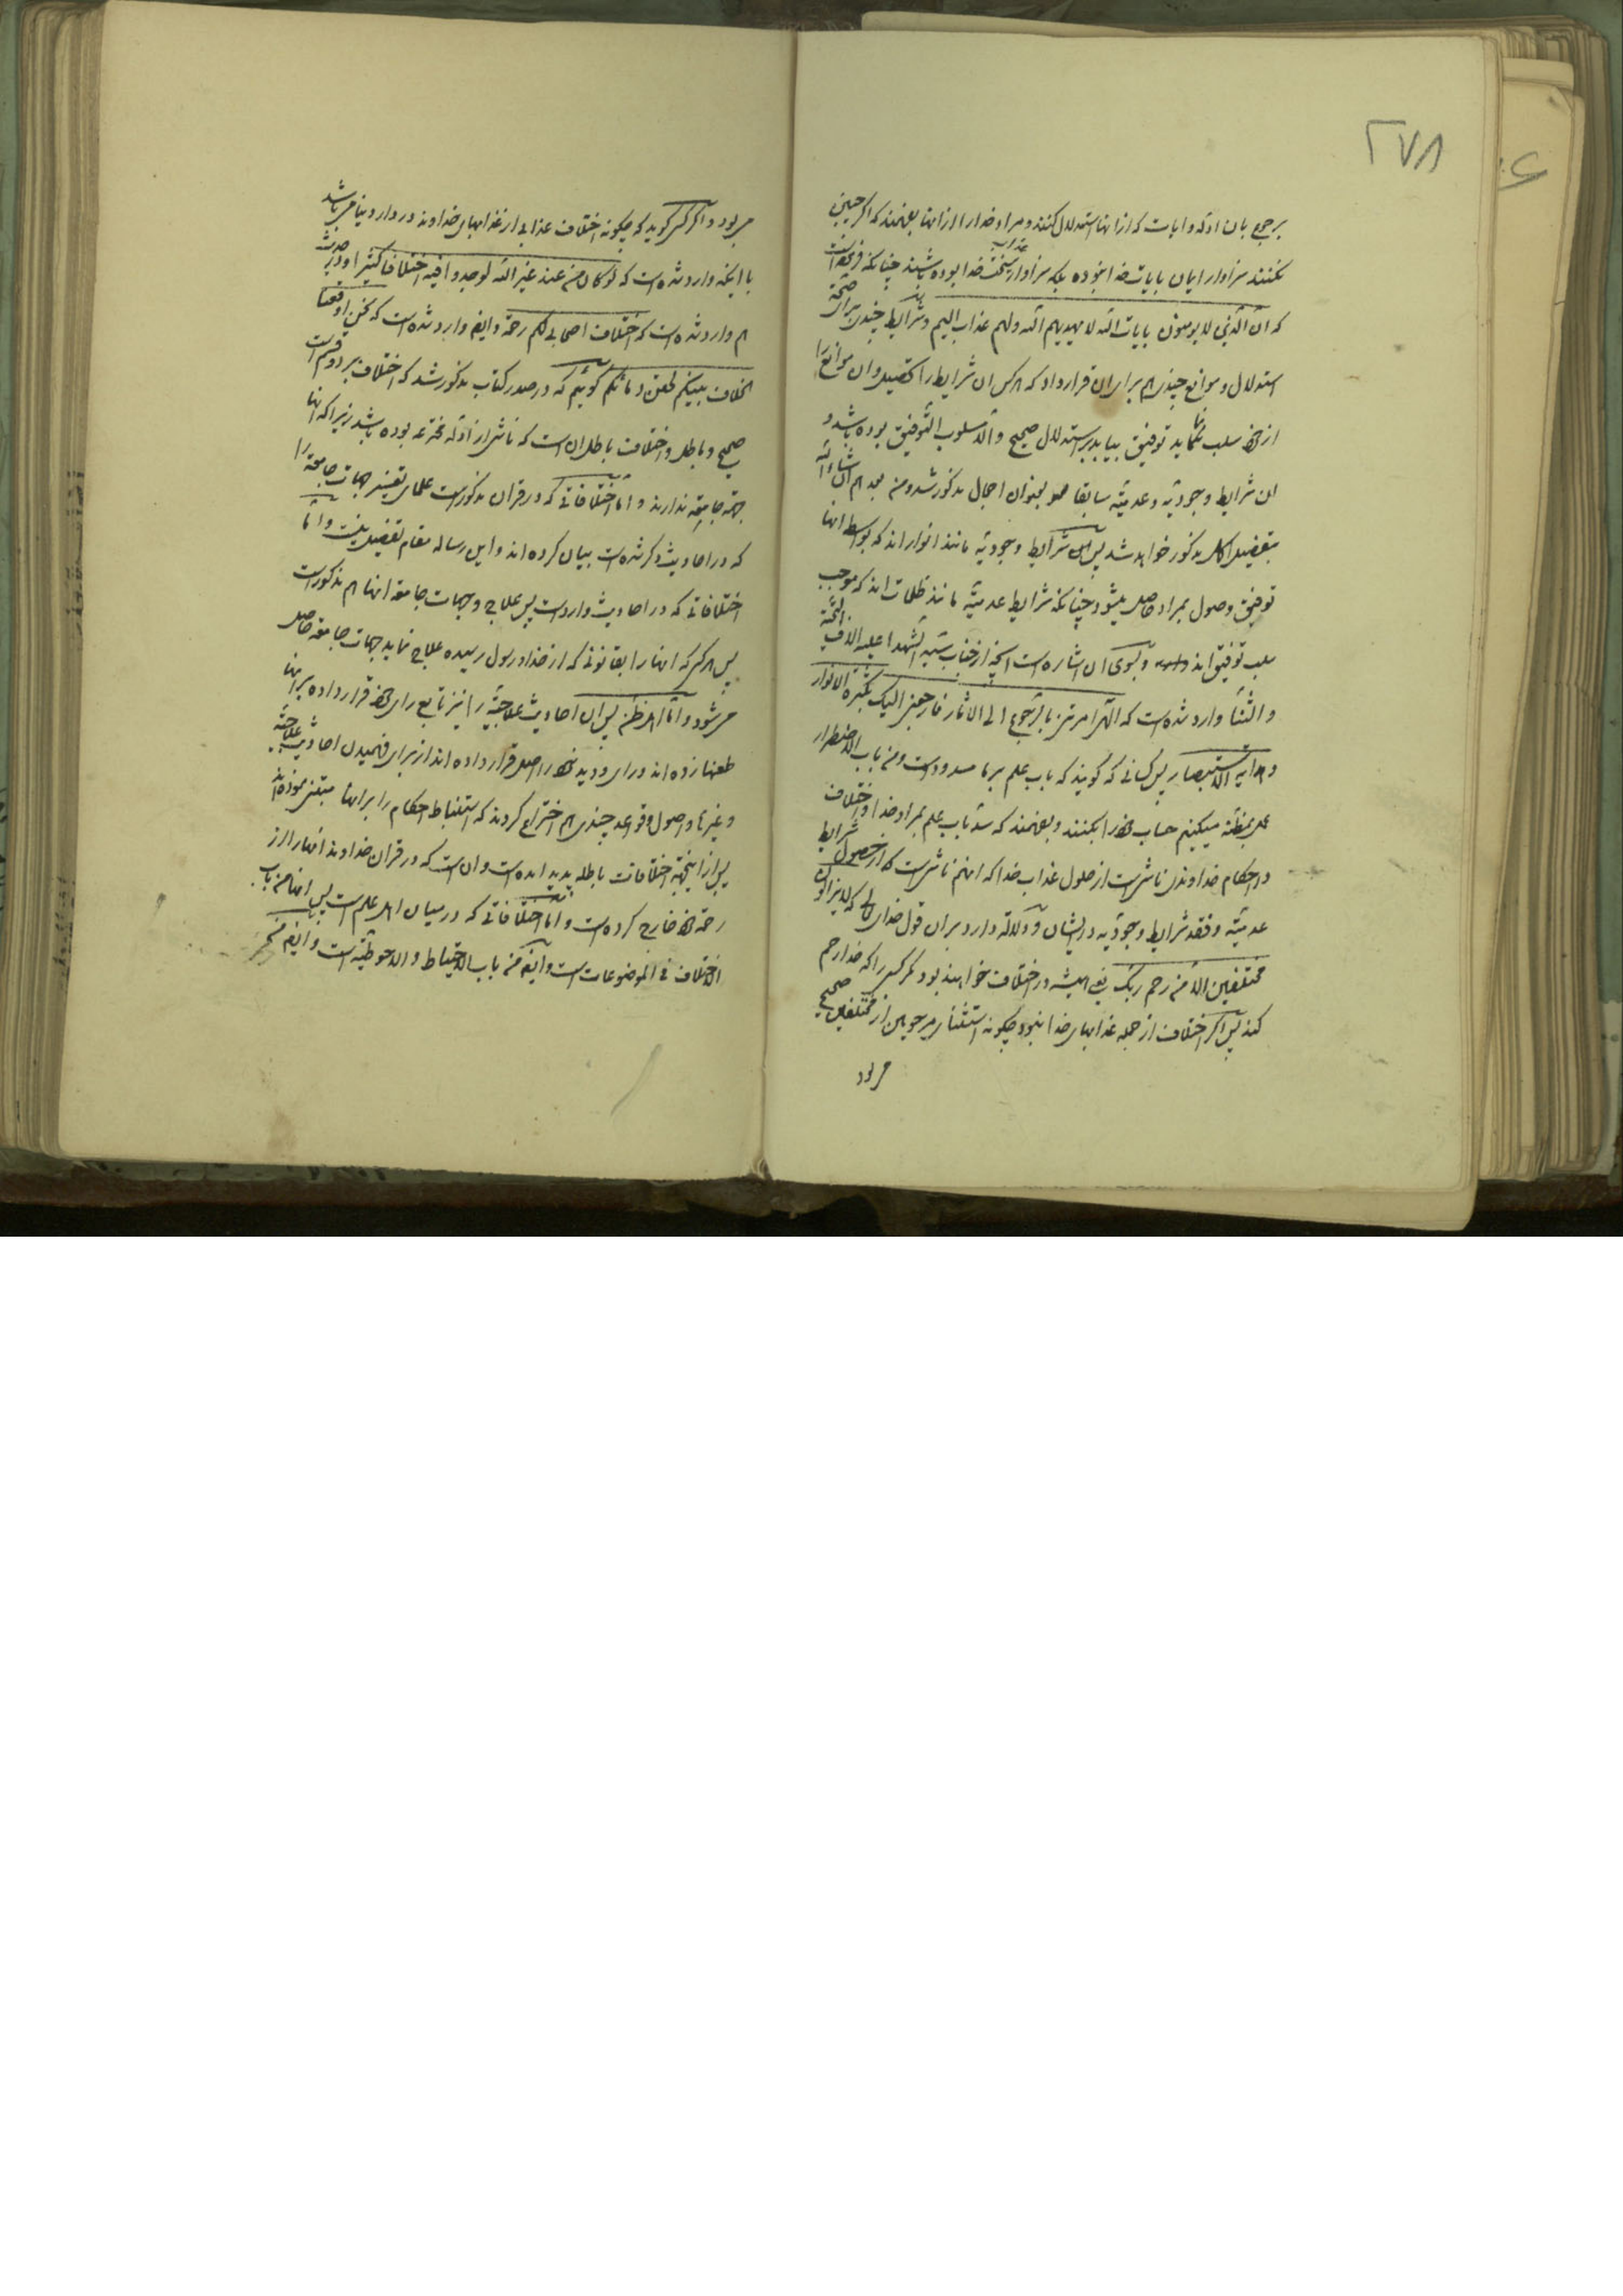 ۲۷۸
برجوع بان ادله و ایات که ازانها استدلال کنند و مراد خدارا ازانها بفهمند که اگر چنین
نکنند سزاوار ایمان بایات خدا نبوده بلکه سزاوار عذاب سخت خدا بوده باشند چنانکه فرموده است
که ان الذین لا یومنون بایات الله لا یهدیهم الله ولهم عذاب الیم و شرایط چندی برای صحة
استدلال و موانع چندی هم برای ان قرار داد که هرکس ان شرایط را تحصیل و ان موانع را
از خود سلب نماید توفیق بیابد بر استدلال صحیح والا مسلوب التوفیق بوده باشد و
ان شرایط وجودیه و عدمیه سابقا هم بعنوان اجمال مذکور شد و من بعد هم انشاء الله
بتفصیل اکمل مذکور خواهد شد پس این شرایط وجودیه مانند انوار اند که بواسطه انها
توفیق وصول بمراد حاصل میشود چنانکه شرایط عدمیه مانند ظلمات اند که موجب
سلب توفیق اند و بسوی ان اشاره است انچه از جناب سید الشهدا علیه الاف التحیة
والثنا وارد شده است که الهی امرتنی بالرجوع الی الاثار فارجعنی الیک بکسوة الانوار
و هدایة الاستبصار پس کسانی که گویند که باب علم بر ما مسدود است و من باب الاضطرار
عمل بمظنه میکنیم حساب خود را بکنند و بفهمند که سد باب علم بمراد خدا و اختلاف
در احکام خداوندی ناشی است از حلول عذاب خدا که انهم ناشی است از حصول شرایط
عدمیه و فقد شرایط وجودیه در ایشان و دلالة دارد بران قول خدای تعالی که لا یزالون
مختلفین الا من رحم ربک یعنی همیشه در اختلاف خواهند بود مگر کسی را که خدا رحم
کند پس اگر اختلاف از جمله عذابهای خدا نبود چگونه استثنای مرحومین از مختلفین صحیح
می بود
می بود و اگر کسی گوید که چگونه اختلاف عذابی از عذابهای خداوند در دار دنیا می باشد
با اینکه وارد شده است که لو کان من عند غیر الله لوجدوا فیه اختلافا کثیرا و در حدیث
هم وارد شده است که اختلاف اصحابی لکم رحمة و ایضا وارد شده است که نحن اوقعنا
الخلاف بینکم لحقن دمائکم گوئیم که در صدر کتاب مذکور شد که اختلاف بر دو قسم است
صحیح و باطل و اختلاف باطل ان است که ناشی از ادله مخترعه بوده باشد زیرا که انها
جهة جامعه ندارند و اما اختلافاتی که در قران مذکور است علمای تفسیر جهات جامعه را
که در احادیث ذکر شده است بیان کرده اند و این رساله مقام تفصیل نیست و اما
اختلافاتی که در احادیث وارد است پس علاج و جهات جامعه انها هم مذکور است
پس هر کسی که انها را بقانونی که از خدا و رسول رسیده علاج نماید جهات جامعه حاصل
می شود و اما اهل ظن پس ان احادیث علاجیه را نیز تابع رای خود قرار داده بر انها
طعنها زده اند و رای و دید خود را اصل قرار داده اند از برای فهمیدن احادیث علاجیه
و غیرها و اصول و قواعد چندی هم اختراع کردند که استنباط احکام را بر انها مبتنی نموده اند
پس از اینجهة اختلافات باطله پدید امده است و ان است که در قران خداوند انها را از
رحمة خود خارج کرده است و اما اختلافاتی که در میان اهل علم است پس انها من باب
الاختلاف فی الموضوعات است و ایضا من باب الاحتیاط والاحوطیه است و ایضا